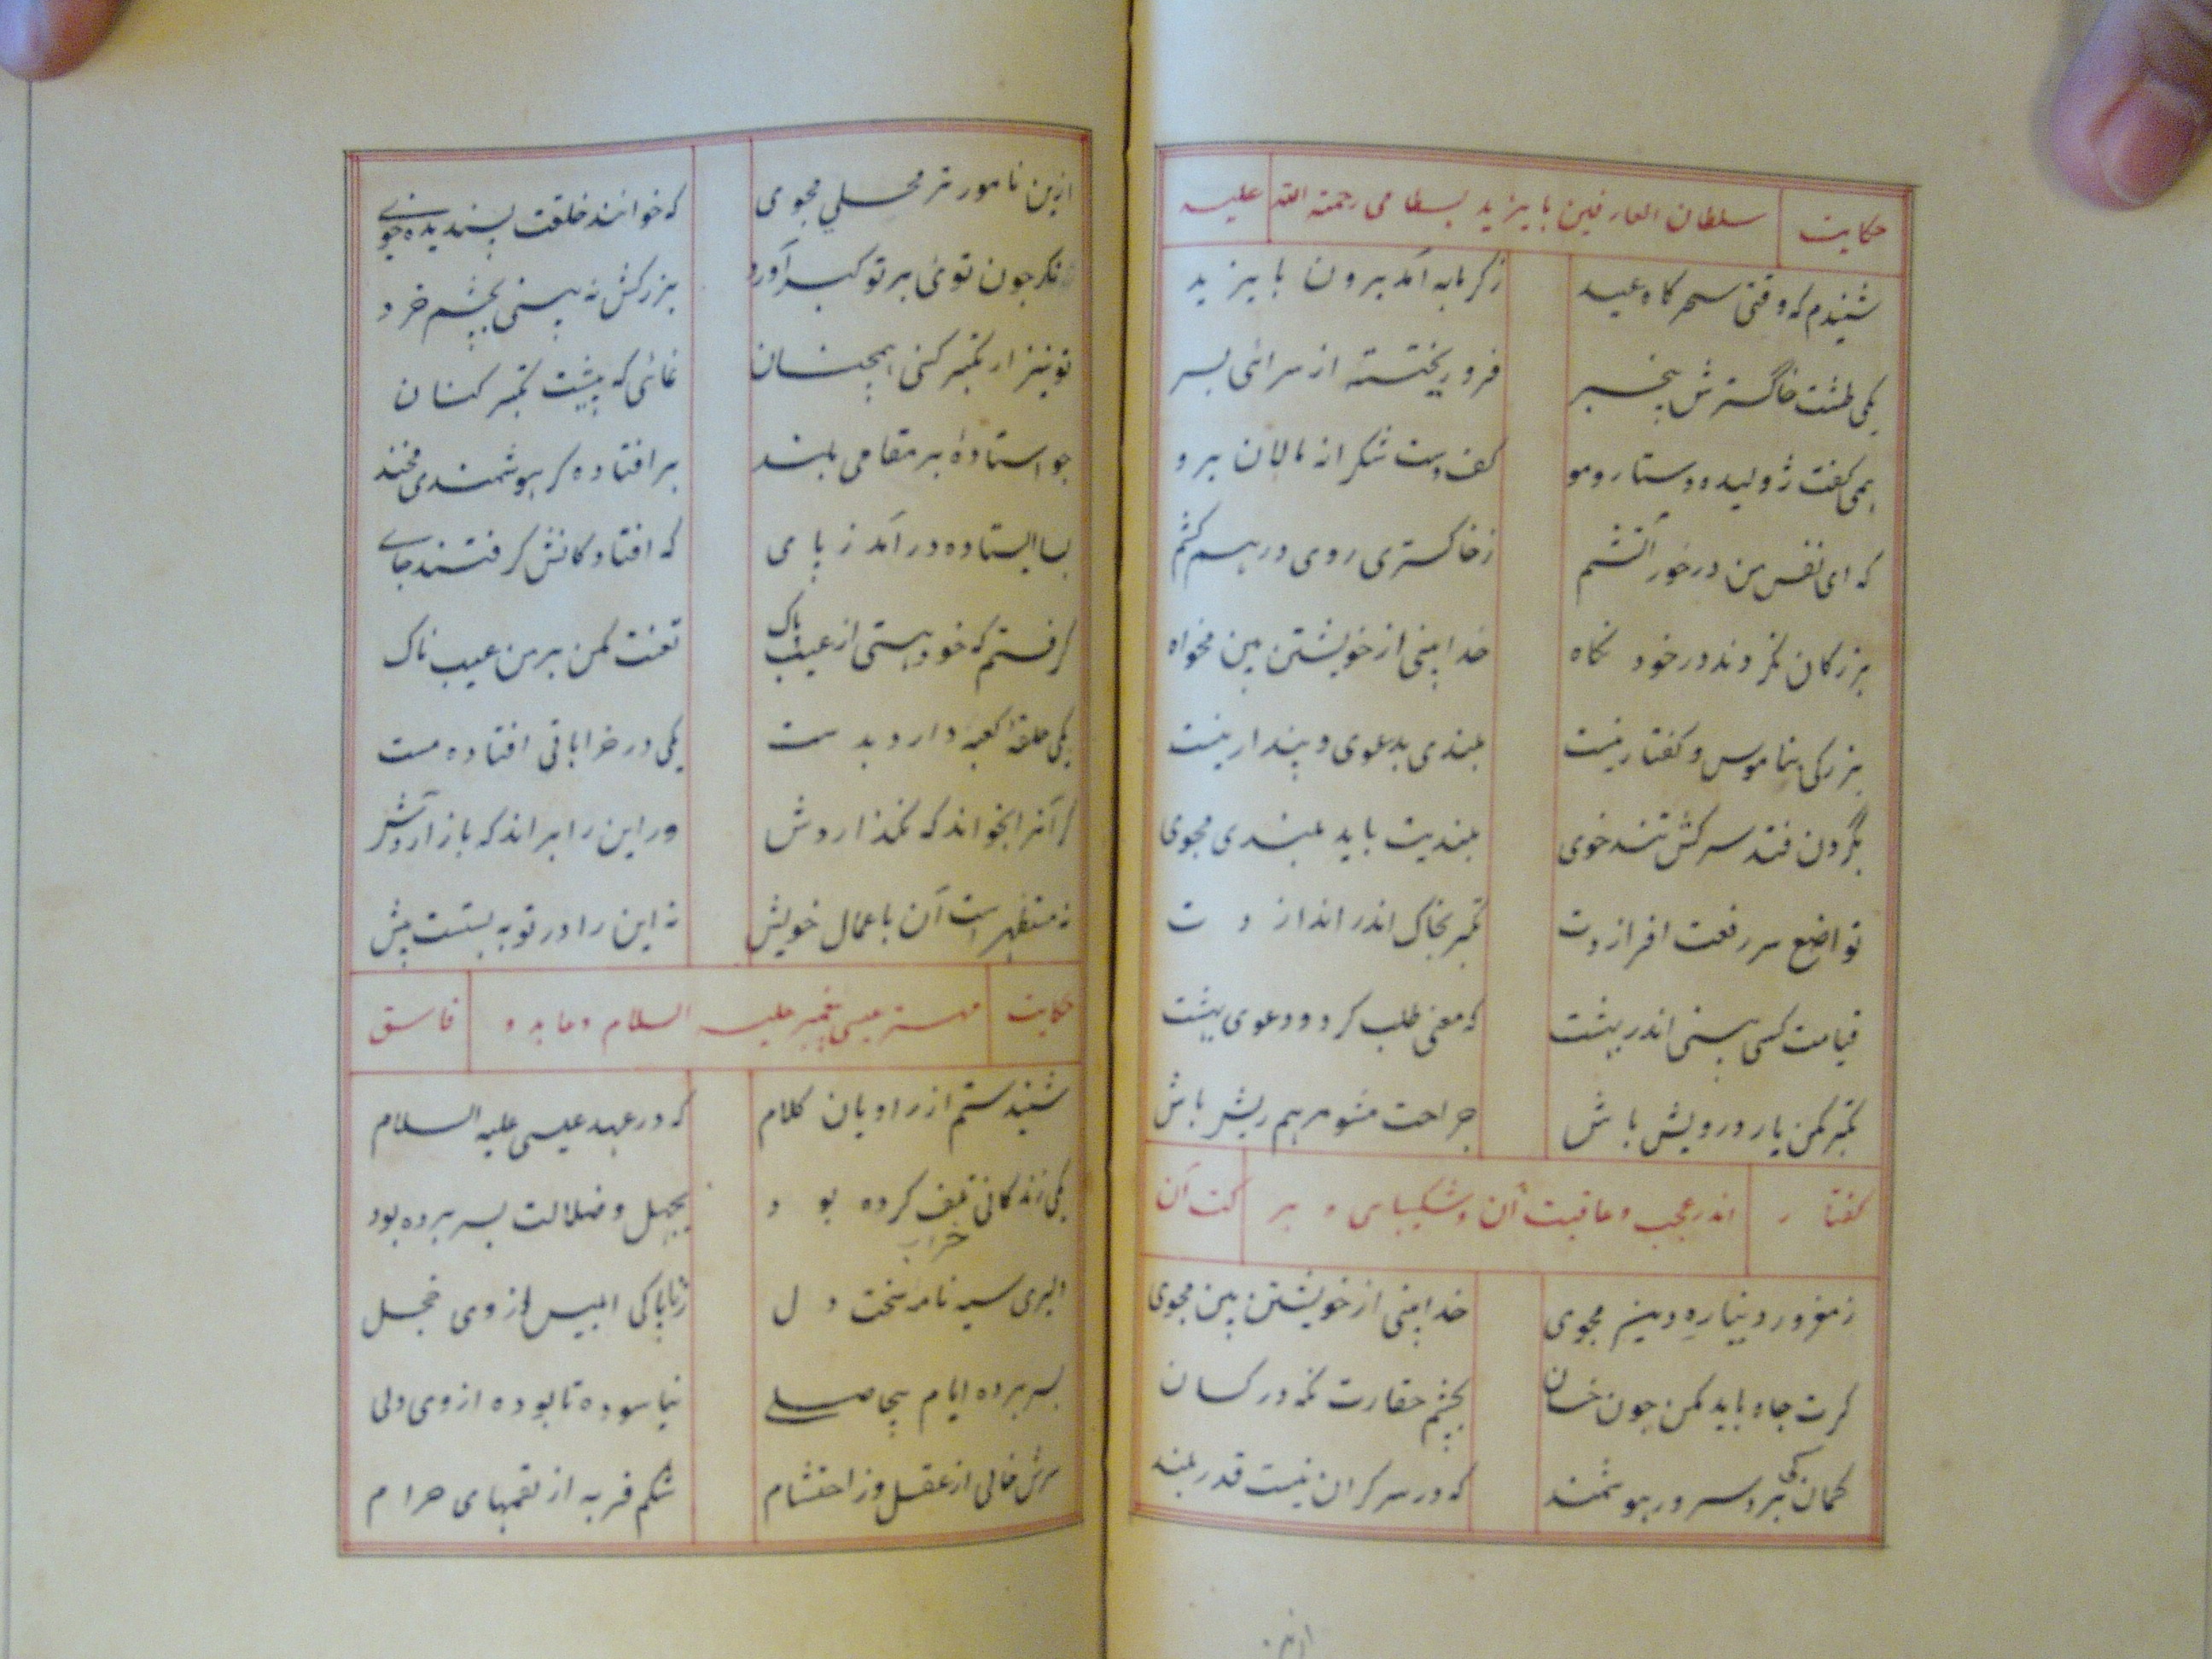 حکایت سلطان العارفین بایزید بسطامی رحمة الله علیه
شنیدم که وقتی سحرکاه عید زکرمابه آمد برون بایزید
یکی طشت خاکسترش بیخبر فرو ریختند از سرائی بسر
همی کفت ژولیده دستار و مو کف دست شکرانه مالان برو
که ای نفس من درخور آتشم زخاکستری روی درهم کشم
بزرکان نکردند در خود نکاه خدا بینی از خویشتن بین مخواه
بزرکی بناموس و کفتار نیست بلندی بدعوی و پندار نیست
بگردن فتد سرکش تندخوی بلندیت باید بلندی مجوی
تواضع سر رفعت افرازدت تکبر بخاک اندر اندازدت
قیامت کسی بینی اندر بهشت که معنی طلب کرد و دعوی بهشت
تکبر مکن یار درویش باش جراحت مشو مرهم ریش باش
کفتار اندر عجب و عاقبت آن و شکیبایی و برکت آن
زمغرور دنیا ره دین مجوی خدا بینی از خویشتن بین مجوی
کرت جاه باید مکن چون خسان بچشم حقارت نکه در کسان
کمان کی برد سرور هوشمند که در سرکران نیست قدر بلند
ازین
ازین نامورتر محلی مجوی که خوانند خلقت پسندیده خوی
نکر چون توئی بر تو کبر آورد بزرکش نه بینی بچشم خرد
تو نیز ار تکبر کنی همچنان نمائی که پیشت تکبر کنان
چو استادهٔ بر مقامی بلند بر افتاده کر هوشمندی مخند
بسا ایستاده درآمد ز پای که افتادکانش کرفتند جای
کرفتم که خود هستی از عیب پاک تعنت مکن بر من عیب ناک
یکی حلقهٔ کعبه دارد بدست یکی در خراباتی افتاده مست
کر آنرا بخواند که نکذاردش ور این را براند که باز آردش
نه مستظهر است آن باعمال خویش نه این را در توبه بستست پیش
حکایت مهتر عیسی پیغمبر علیه السلام و عابد و فاسق
شنیدستم از راویان کلام که در عهد عیسی علیه السلام
یکی زندکانی تلف کرده بود بجهل و ضلالت بسر برده بود
خراب
دلیری سیه نامهٔ سخت دل زناپاکی ابلیس از وی خجل
بسر برده ایام بیحاصلی نیاسوده تا بوده از وی دلی
سرش خالی از عقل وز احتشام شکم فربه از لقمهای حرام